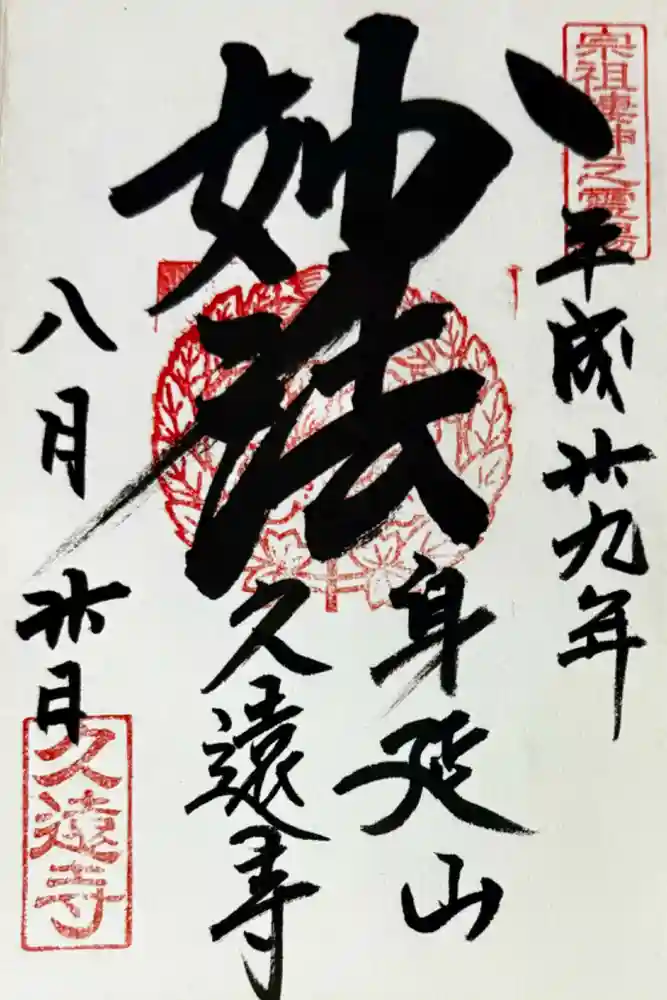 宗祖棲神之霊場
平成廿九年
妙法
身延山
久遠寺
八月廿日
久遠寺